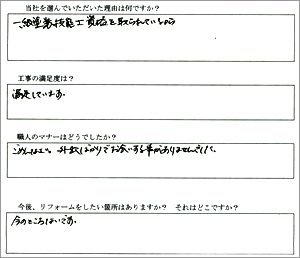 当社を選んでいただいた理由は何ですか？
一級塗装技能士資格を取られているから
工事の満足度は？
満足しています。
職人のマナーはどうでしたか？
ごめんなさい。外出ばかりでお会いする事がありませんでした。
今後、リフォームをしたい箇所はありますか？　それはどこですか？
今のところないです。